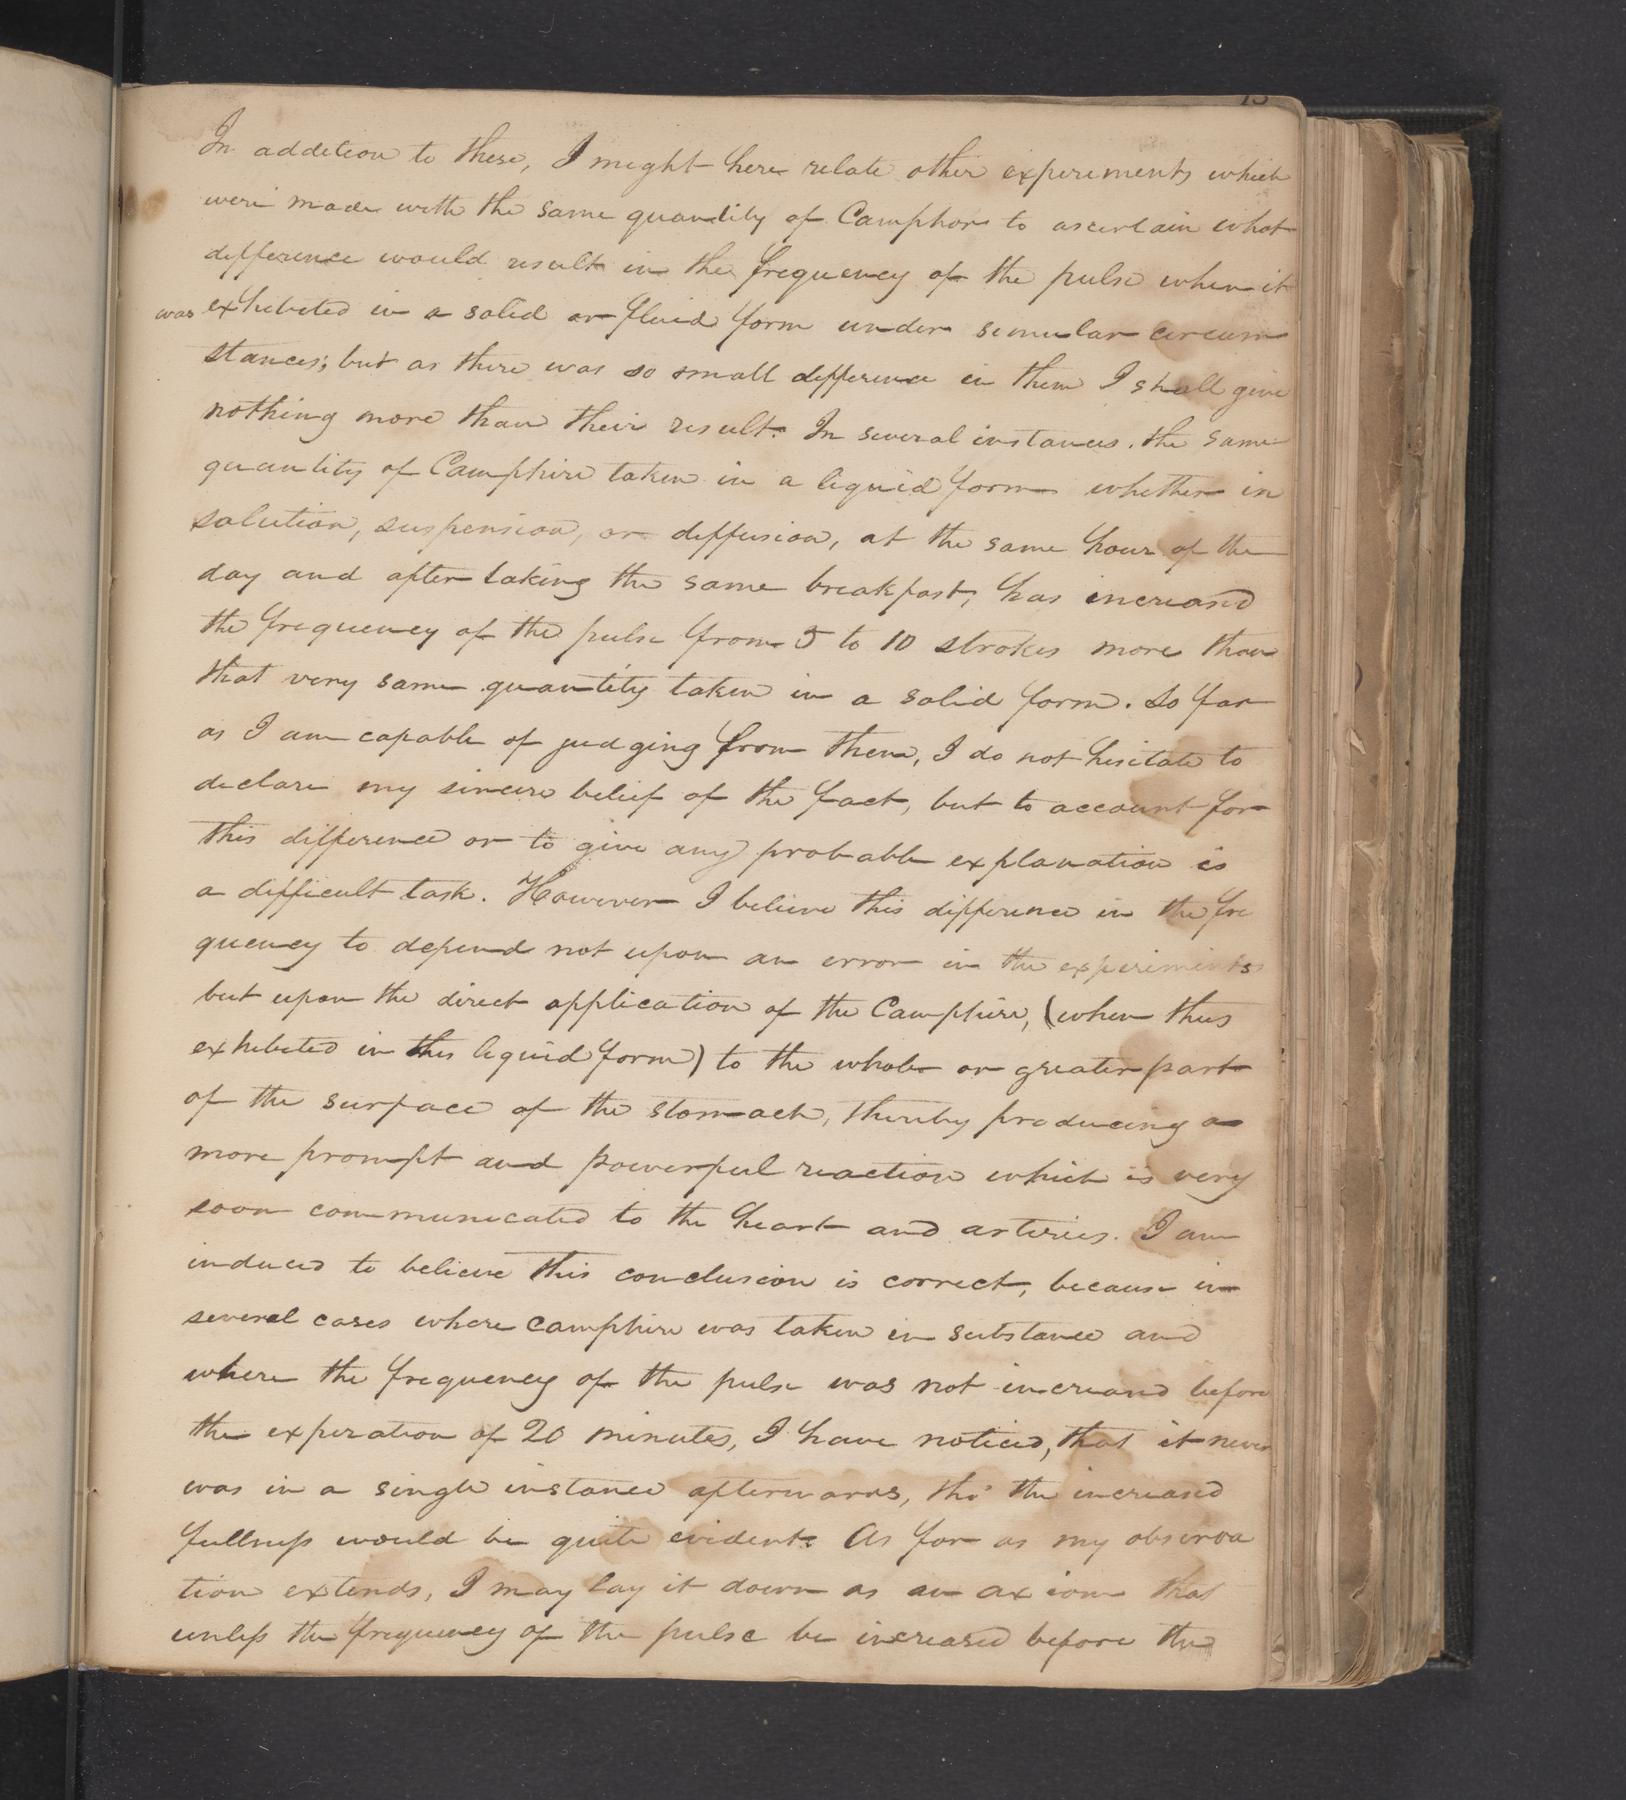 13
In addition to these, I might here relate other experiments which
were made with the same quantity of Camphor to ascertain what
difference would result in the frequency of the pulse when it
was exhibited in a solid or fluid form under similar circum
stances; but as there was so small difference in them I shall give
nothing more than their result. In several instances, the same
quantity of Camphire taken in a liquid form whether in
solution, suspension, or diffusion, at the same hour of the
day and after taking the same breakfast, has increasd
the frequency of the pulse from 5 to 10 strokes more than
that very same quantity taken in a solid form. So far
as I am capable of judging from them, I do not hesitate to
declare my sincere belief of the fact, but to account for
this difference or to give any probable explanation is
a difficult task. However I believe this difference in the fre
quency to depend not upon an error in the experiments
but upon the direct application of the Camphire, (when thus
exhibited in this liquid form) to the whole or greater part
of the surface of the stomach, thereby producing a
more prompt and powerful reaction which is very
soon communicated to the heart and arteries. I am
induced to believe this conclusion is correct, because in
several cases where camphire was taken in substance and
where the frequency of the pulse was not increasd before
the experation of 20 minutes, I have noticed, that it never
was in a single instance afterwards, tho' the increased
fullness would be quite evident. As far as my observa
tion extends, I may lay it down as an axiom that
unless the frequency of the pulse be increased before the